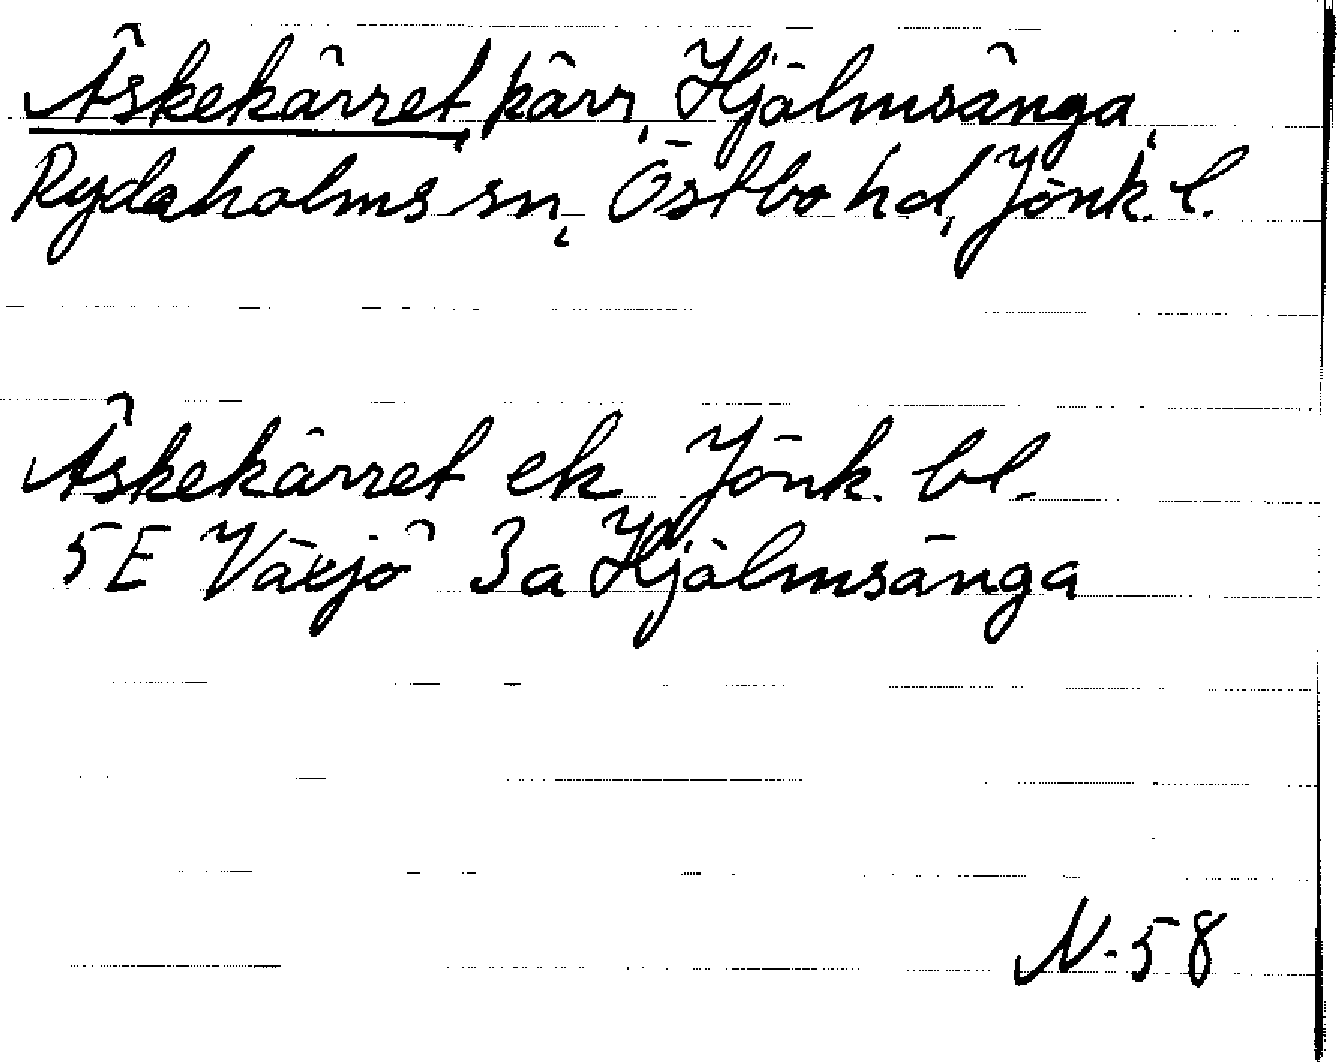 Äskekärret, kärr, Hjälmsänga,
Rydaholms sn, Östbo hd, Jönk. l.
Äskekärret ek Jönk. bl.
5E Växjö 3a Hjälmsänga
N-58